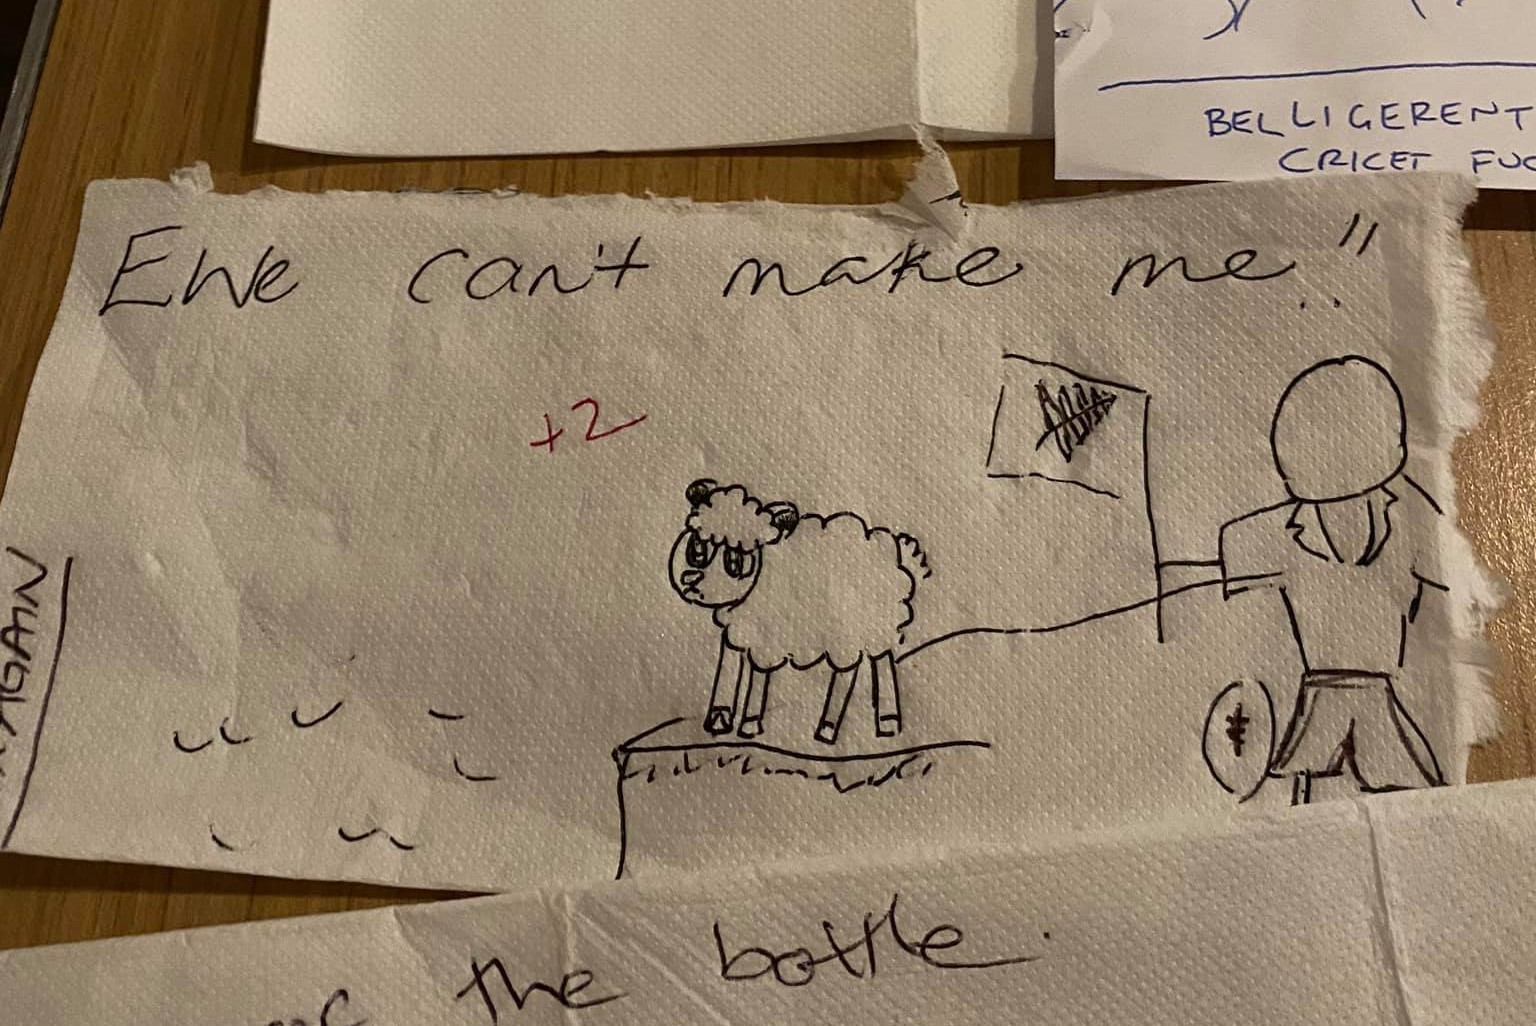 BELLIGERENT
CRICET FUC
Ewe can't make me!!
+2
AGAN
the bottle.